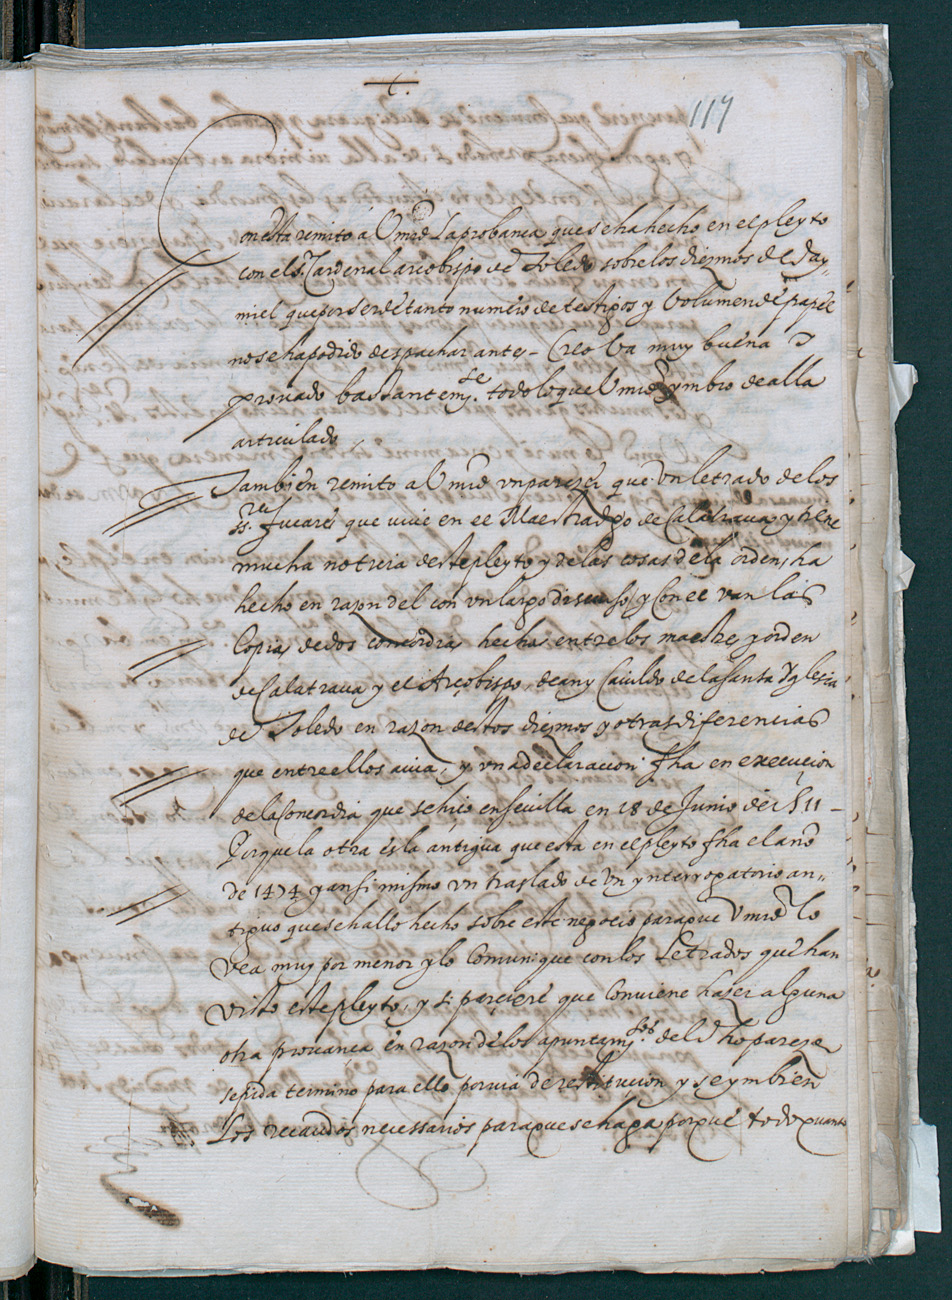 +
119
Con esta remito a Vmd la probança que se ha hecho en el pleyto
con el Sr. Cardenal arçobispo de Toledo sobre los diezmos de Day-
miel que por ser de tanto numero de testigos y Volumen de papel
no se ha podido despachar ante - Creo Va muy buena y
prouado bastantemte. todo lo que Vmd ymbio de alla
articulado
Tambien remito a Vmd vn parezer que vn letrado de los
sres. fucares que viue en el Maestradgo de Calatraua y tiene
mucha noticia deste pleyto y de las cosas de la orden, ha
hecho en razon del con vn largo discurso y con el van las
Copias de dos concordias hechas entre los maestre y orden
de Calatraua y el Arçobispo, dean y Cauildo de la santa Yglesia
de Toledo en razon destos diezmos y otras diferencias
que entre ellos auia, y vna declaracion fha en execuçion
de la Concordia que se hiço en seuilla en 18 de Junio de 1511 -
Porque la otra es la antigua que esta en el pleyto fha el año
de 1474 y ansi mismo vn traslado de Vn ynterrogatorio an-
tiguo que se hallo hecho sobre este negocio para que Vmd lo
Vea muy por menor y lo Comunique con los Letrados que han
visto este pleyto, y si pareçiere que Conuiene hazer alguna
otra prouança en razon de los apuntamtos. del dho parezer
se pida termino para ello por via de restituçion y se ymbien
Los recaudos necessarios para que se haga, porque todo quanto